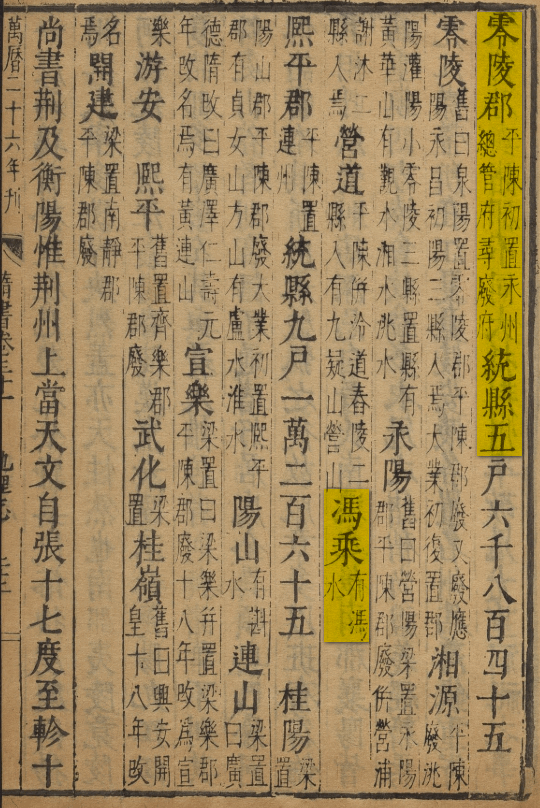 零陵郡平陳初置永州總管府尋廢府統縣五戶六千八百四十五
零陵舊曰泉陽置零陵郡平陳郡廢又廢應陽永昌初陽三縣人焉大業初復置郡湘源平陳廢洮
陽灌陽小零陵三縣置縣有黃華山有觀水湘水洮水永陽舊曰營陽梁置永陽郡平陳郡廢併營浦
謝沐二縣入焉營道平陳併泠道舂陵二縣入有九疑山營山馮乘有馮水
熙平郡平陳置連州統縣九戶一萬二百六十五桂陽梁置
陽山郡平陳郡廢大業初置熙平郡有貞女山方山有盧水洭水陽山有斟水連山梁置曰廣
德隋改曰廣澤仁壽元年改名焉有黃連山宣樂梁置曰梁樂并置梁樂郡平陳郡廢十八年改爲宣
樂游安熙平舊置齊樂郡平陳郡廢武化梁置桂嶺舊曰興安開皇十八年改
名焉開建梁置南靜郡平陳郡廢
尚書荆及衡陽惟荆州上當天文自張十七度至軫十
萬曆二十六年刊
隋書卷三十一
地理志